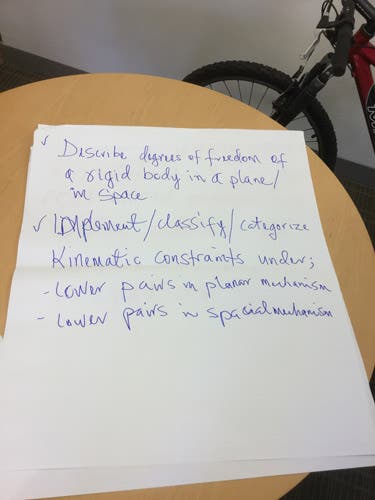 ✓ Describe degrees of freedom of
a rigid body in a plane/
in space
✓ Implement/classify/categorize
Kinematic constraints under;
- Lower pairs in planar mechanism
- Lower pairs in spacial mechanism